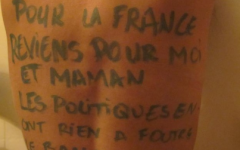 POUR LA FRANCE
REVIENS POUR MOI
ET MAMAN
LES POLITIQUES EN
ONT RIEN A FOUTRE